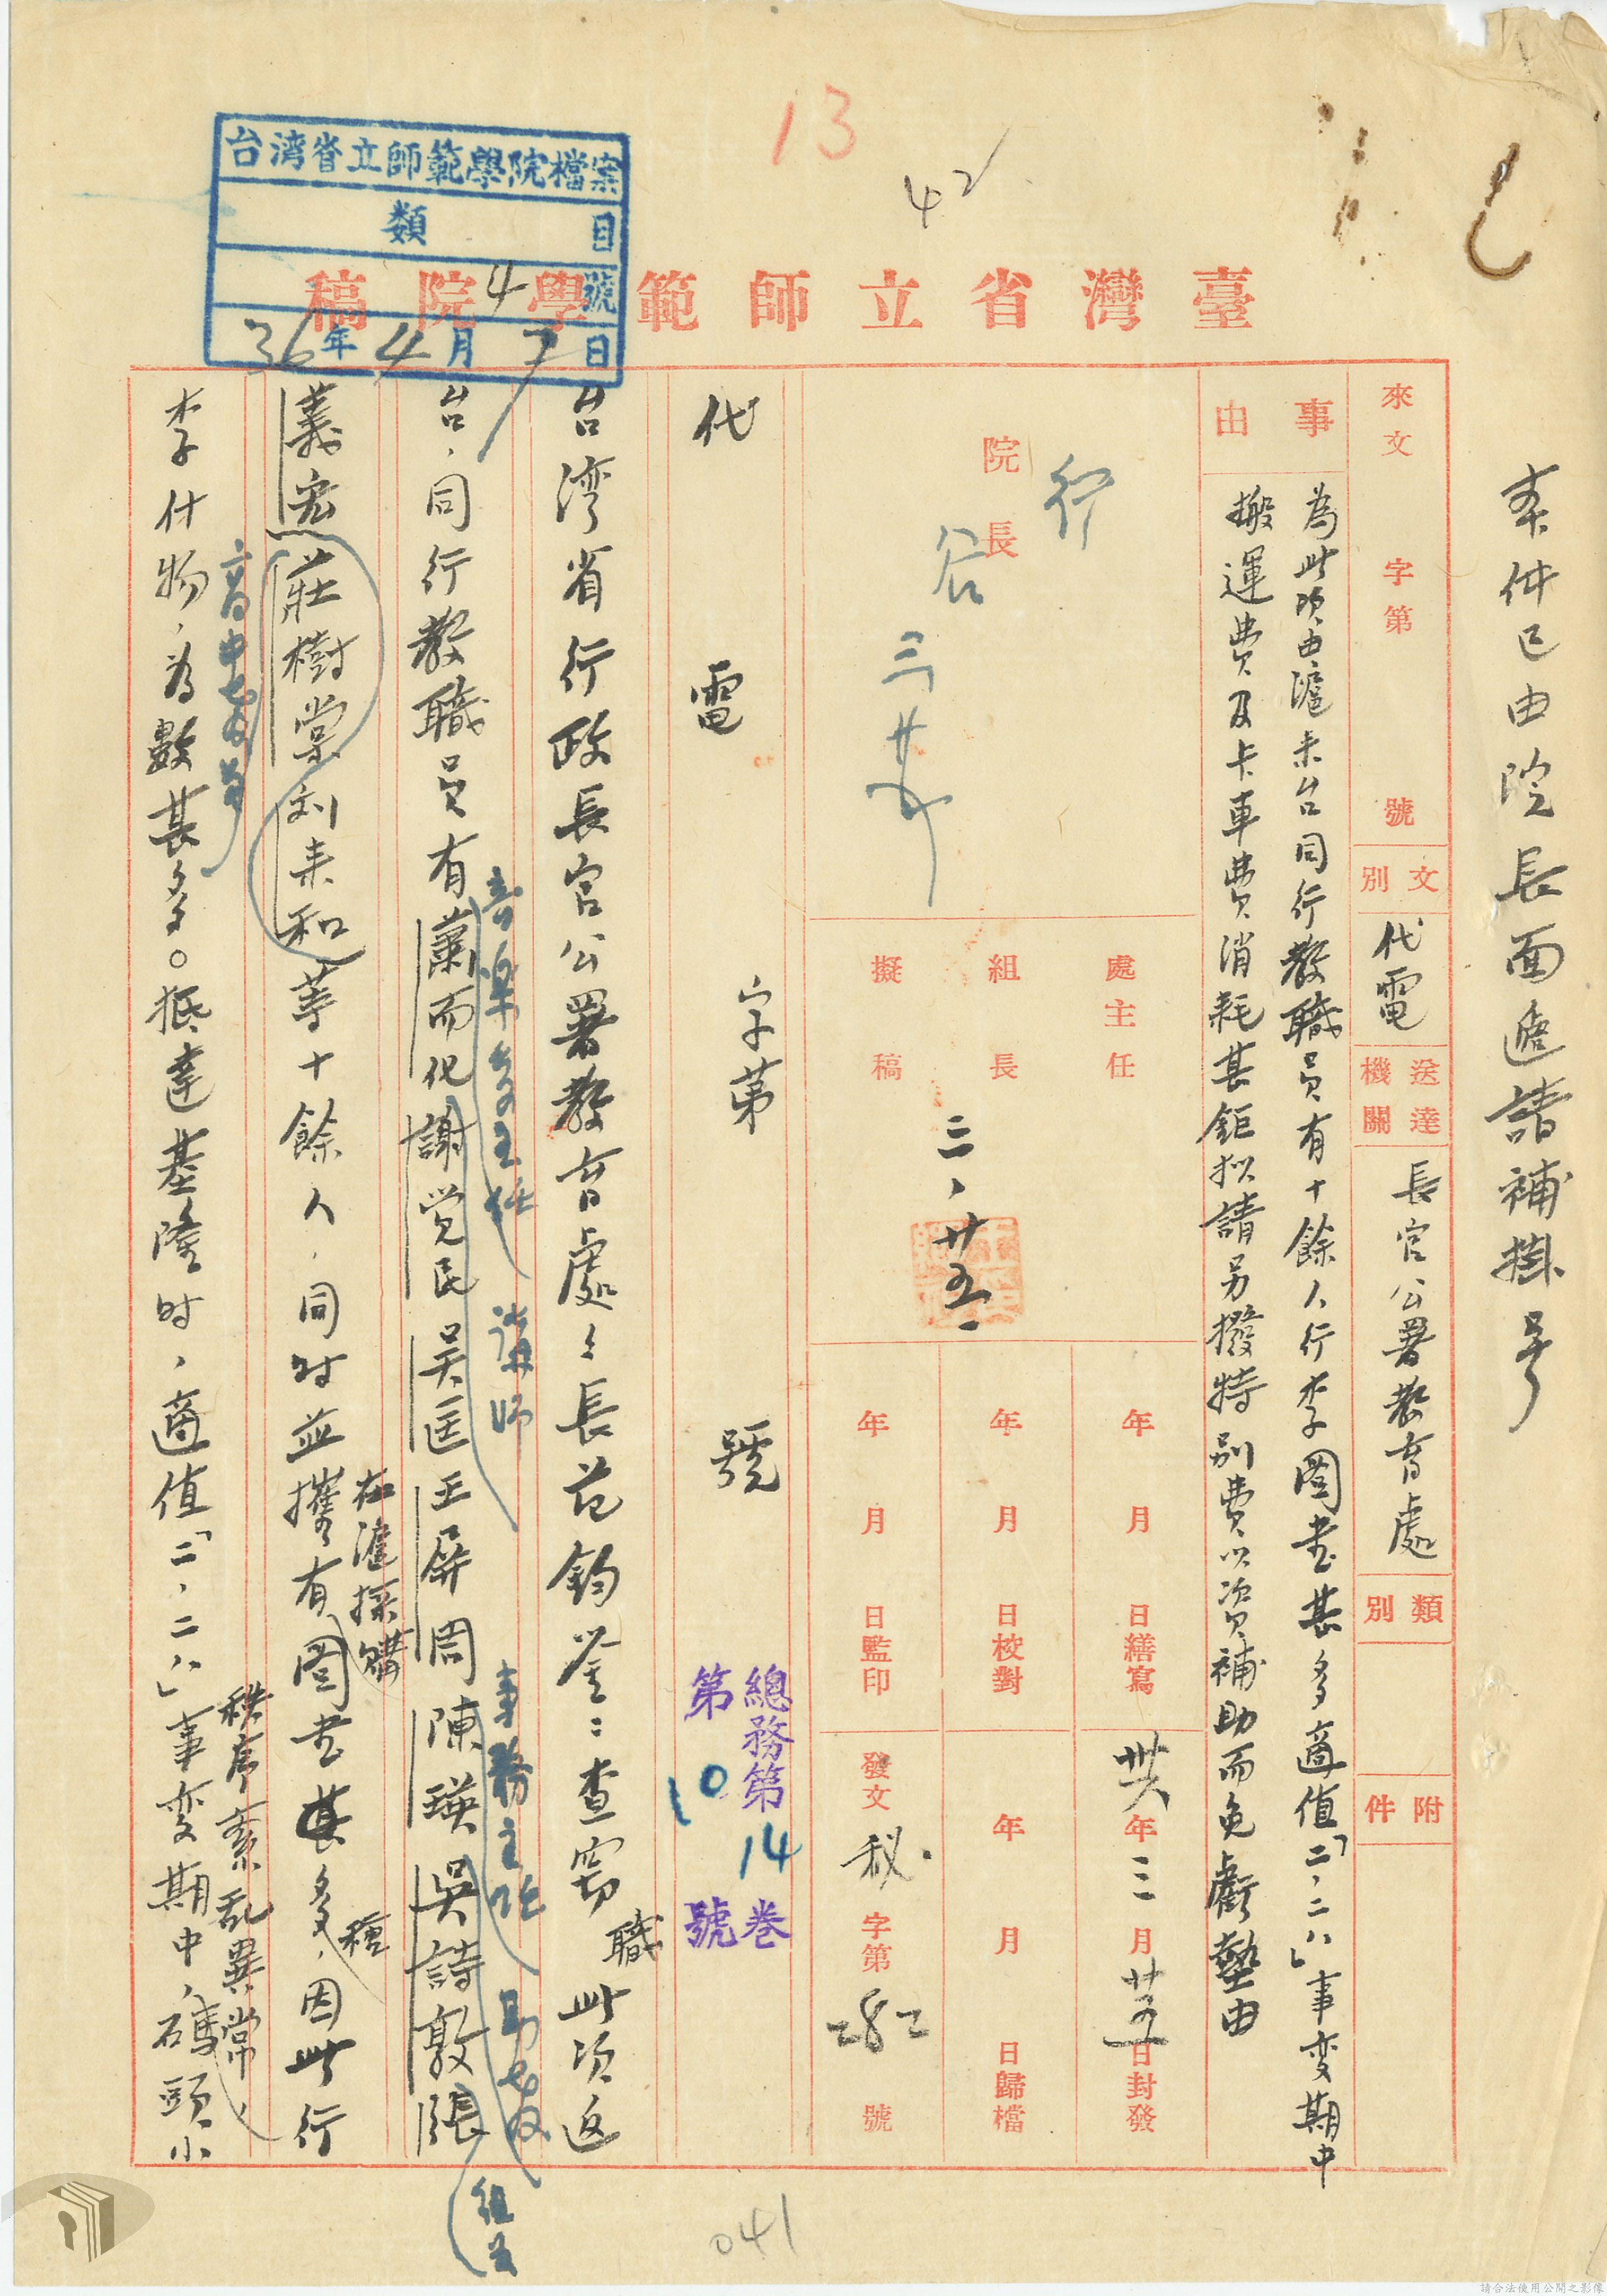 13
42
台湾省立師範學院檔案
類 目
4 號
36年4月7日
臺灣省立師範學院稿
本件已由院長面遞請補掛号
來文 字第 號
文別 代電
送達機關 長官公署教育處
類別
附件
事由
為此次由滬来台同行教職員有十餘人行李圖書甚多適值「二、二八」事变期中
搬運費及卡車費消耗甚鉅拟請另撥特别費以資補助而免虧墊由
院長
行
三
處主任
組長
擬稿
三、廿五、
年 月 日繕寫
年 月 日校對
年 月 日監印
卅六年三月廿五日封發
年 月 日歸檔
發文秘字第282號
代電 字第 號
總務第14卷
第10號
台湾省行政長官公署教育處々長范鈞鉴：查窃職此次返
台，同行教職員有蕭而化謝觉民吴匡王屏周陳瑛吳詩敦張
音樂系主任
講師
事務主任
組員
義宏莊樹棠刘来和等十餘人，同时並攜有圖書甚多，因此行
在滬採購
種
李什物，為數甚多。抵達基隆时，適值「二，二八」事变期中，碼頭小
秩序紊乱異常
041
請合法使用公開之影像